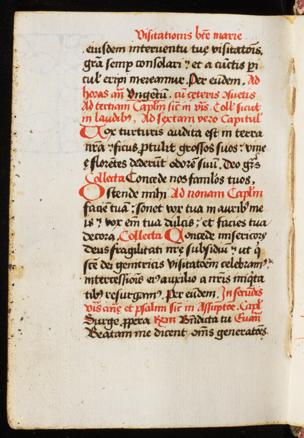 Visitationis bte marie
eiusdem interventu tue visitatois
gra semp consolari ⁊ et a cuctis pi
cul' eripi mereamur. Per eudem. Ad
horas an Ungetu. cu ceteris Quetis
Ad terciam Capl'm sic in vis. Coll' sicut
in laudib9. Ad sextam vero Capitul'
Vox turturis audita est in terra
nra ⁊ ficus ptulit grossos suos ⁊ vinee
floretes dederut odore suu. Deo gras
Collecta Concede nos famlos tuos.
Ostende mihi Ad nonam Capl'm
facie tua ⁊ sonet vox tua in aurib9 me
is ⁊ vox em tua dulcis ⁊ et facies tua
decora. Collecta Concede misericors
deus fragilitati nre subsidiu ⁊ ut q
sce dei genitricis visitatoem celebram9
intercessiois ei9 auxilio a nris iniqta
tib9 resurgam9. Per eudem. In secudis
vis ane et psalmi sic in Assuptoe. Capl'
Surge, ppera Rm Bndicta tu Euan'
Beatam me dicent oms generatoes.